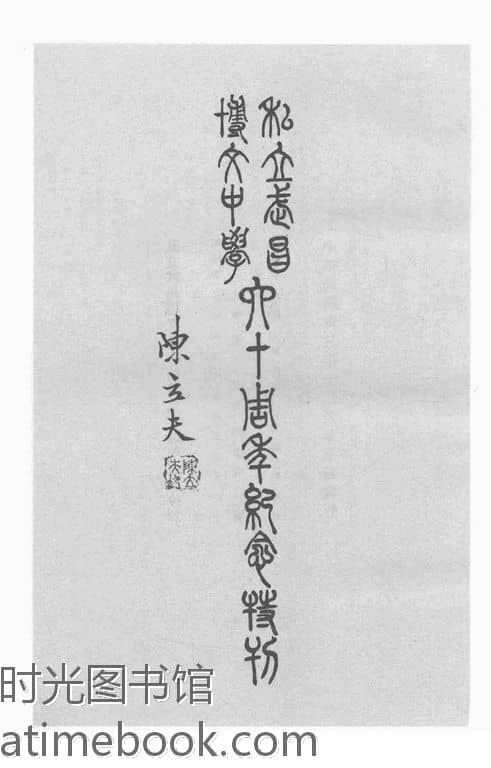 私立武昌
博文中學
六十周年紀念特刊
陳立夫
时光图书馆
atimebook.com